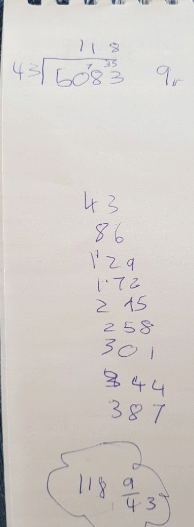 118
43 5083 9r
43
86
129
172
215
258
301
344
387
118 9/43